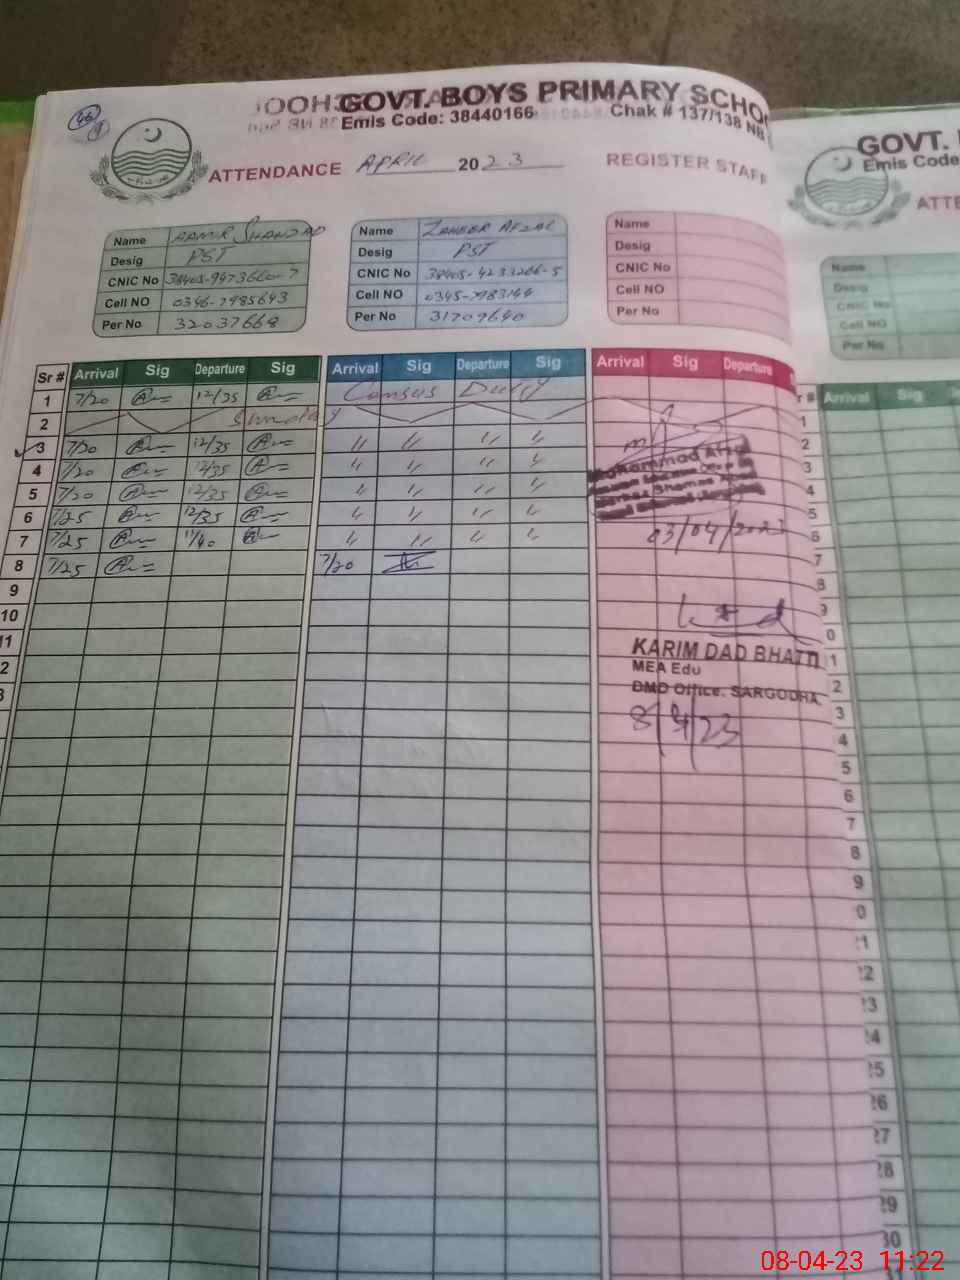 GOVT. BOYS PRIMARY SCHO
Emis Code: 38440166
Chak # 137/138 NB
46
9
ATTENDANCE APRIL 2023 REGISTER STAFF
Name AAMIR SHAHZAD
Desig PST
CNIC No 38405-9473660-7
Cell NO 0346-7985643
Per No 32037668
Name ZAHEER AFZAL
Desig PST
CNIC No 38405-4233266-5
Cell NO 0345-7983144
Per No 31709640
Name
Desig
CNIC No
Cell NO
Per No
Sr # Arrival Sig Departure Sig Arrival Sig Departure Sig Arrival Sig Departure
1 7/20 12/35 Census Duty
2 Sunday
3 7/20 12/35 " " " "
4 7/20 12/35 " " " "
5 7/20 12/35 " " " "
6 7/25 12/35 " " " "
7 7/25 11/40 " " " "
8 7/25 7/20
9
10
11
2
3
Mohammad
03/04/2023
KARIM DAD BHATTI
MEA Edu
DMD Office. SARGODHA
8/4/23
GOVT.
Emis Code
ATTE
Name
Desig
CNIC No
Cell NO
Per No
r # Arrival Sig
1
2
3
4
5
6
7
8
9
0
1
2
3
4
5
6
7
8
9
0
21
22
23
24
25
26
27
28
29
30
08-04-23 11:22